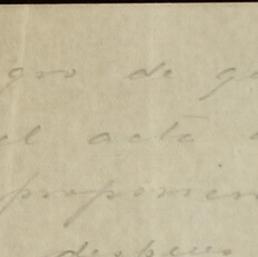 gro de ge
el acto
proponien
despues